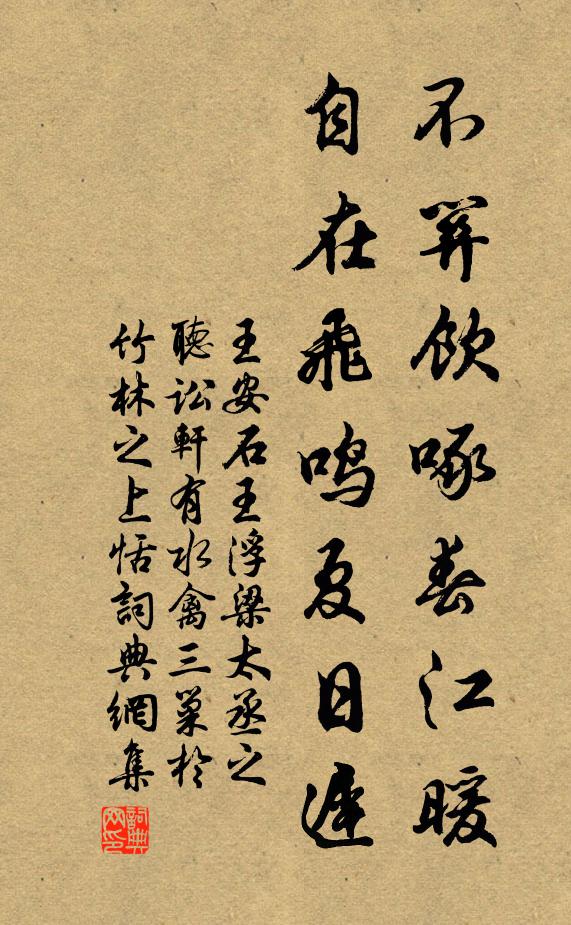 不飲啄春江暖
自在飛鳴夏日遲
王安石王浮梁太丞之
聽訟軒有水禽三巢於
竹林之上恬詞典網集
詞典
网印